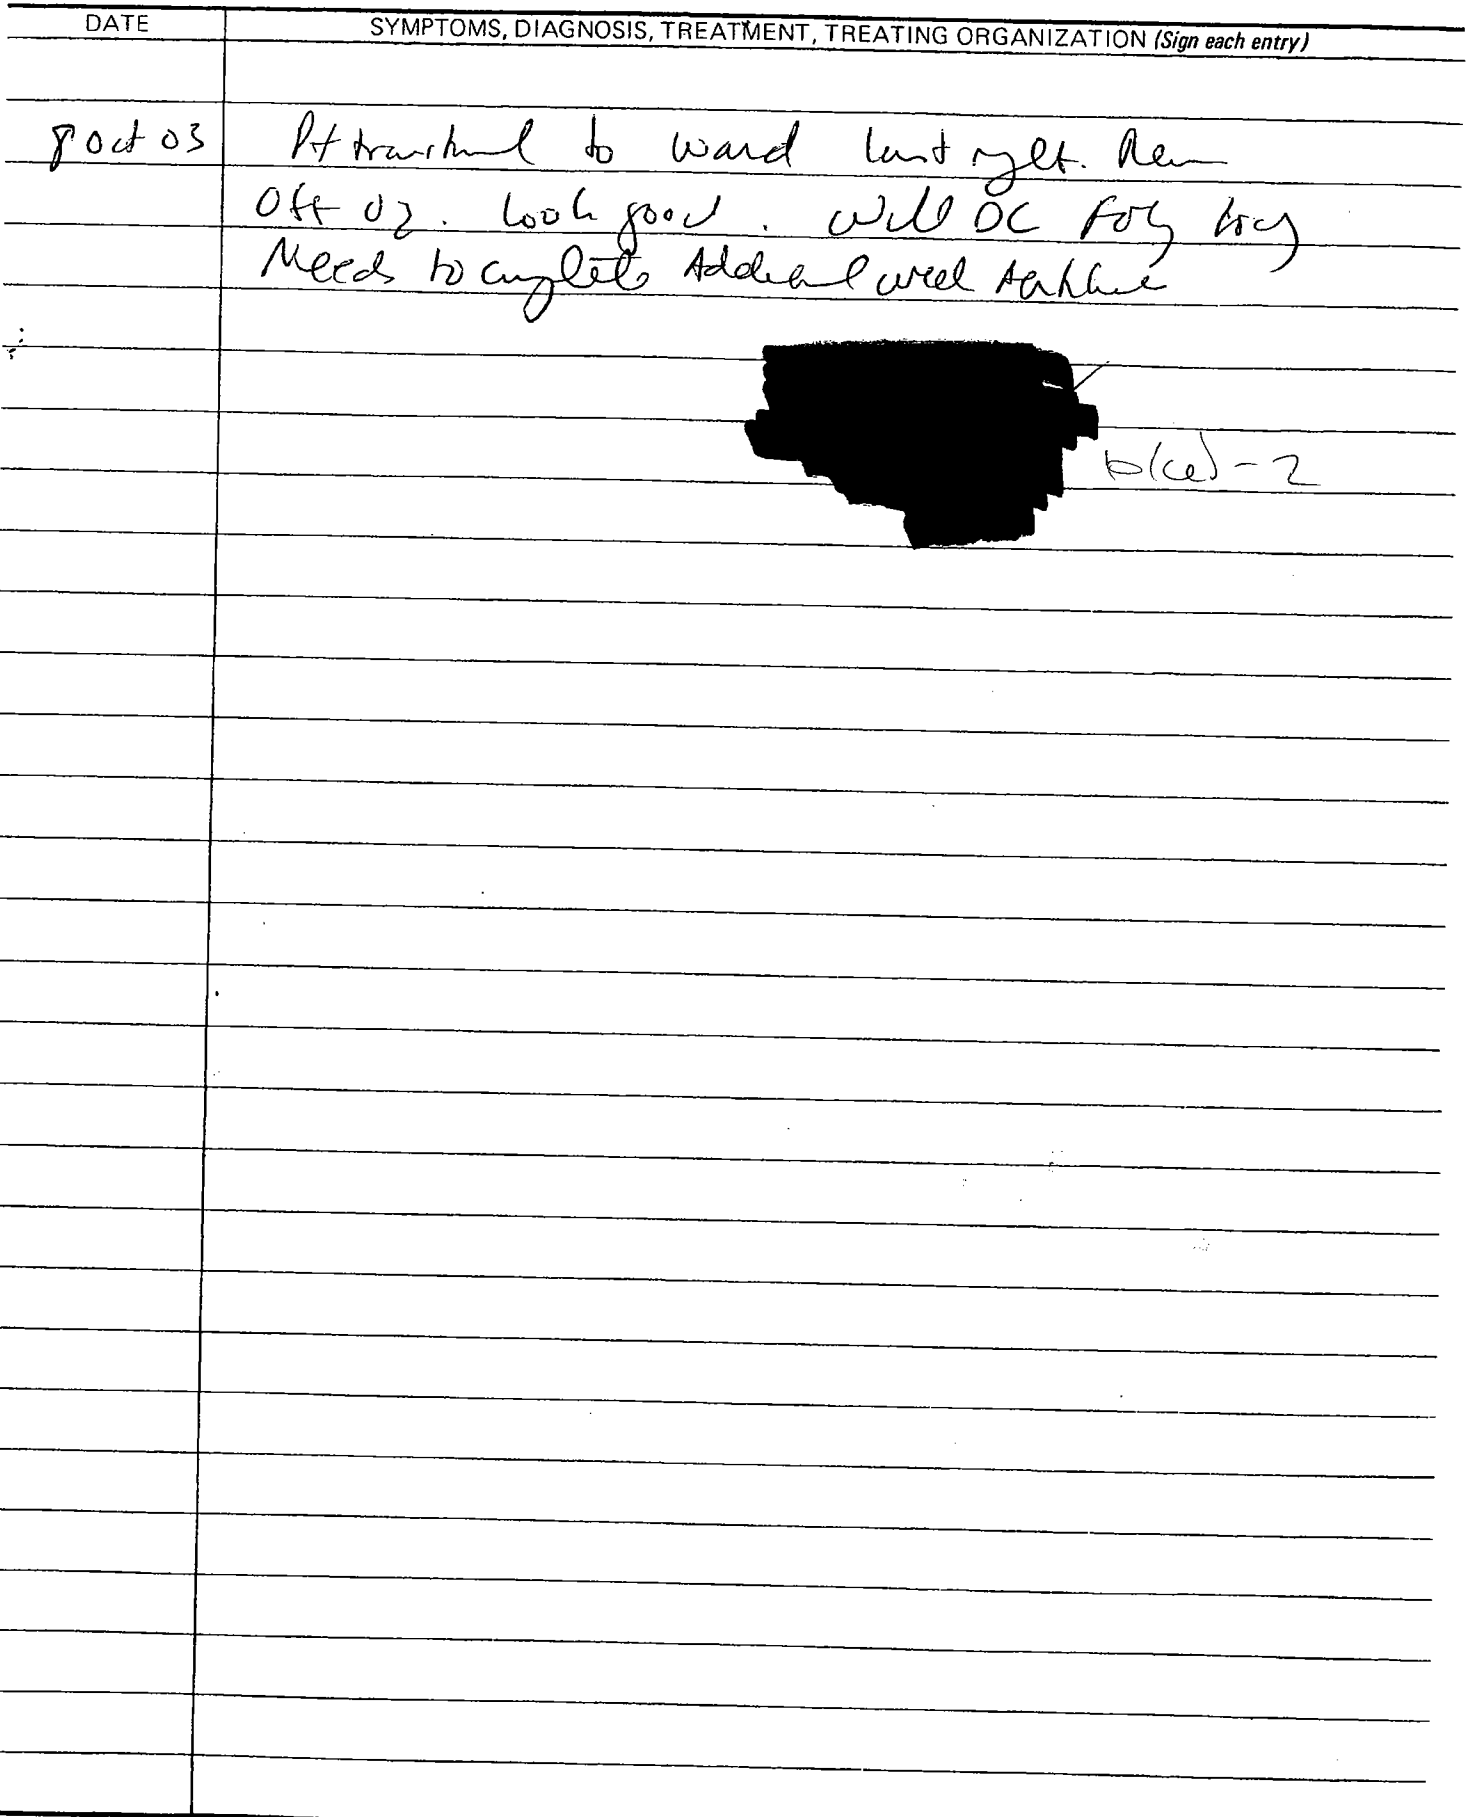 DATE SYMPTOMS, DIAGNOSIS, TREATMENT, TREATING ORGANIZATION (Sign each entry)
8 Oct 03 Pt transferred to ward last night.
Off O2. Looks good. Will DC Foley today
Needs to complete additional week
b(6)-2